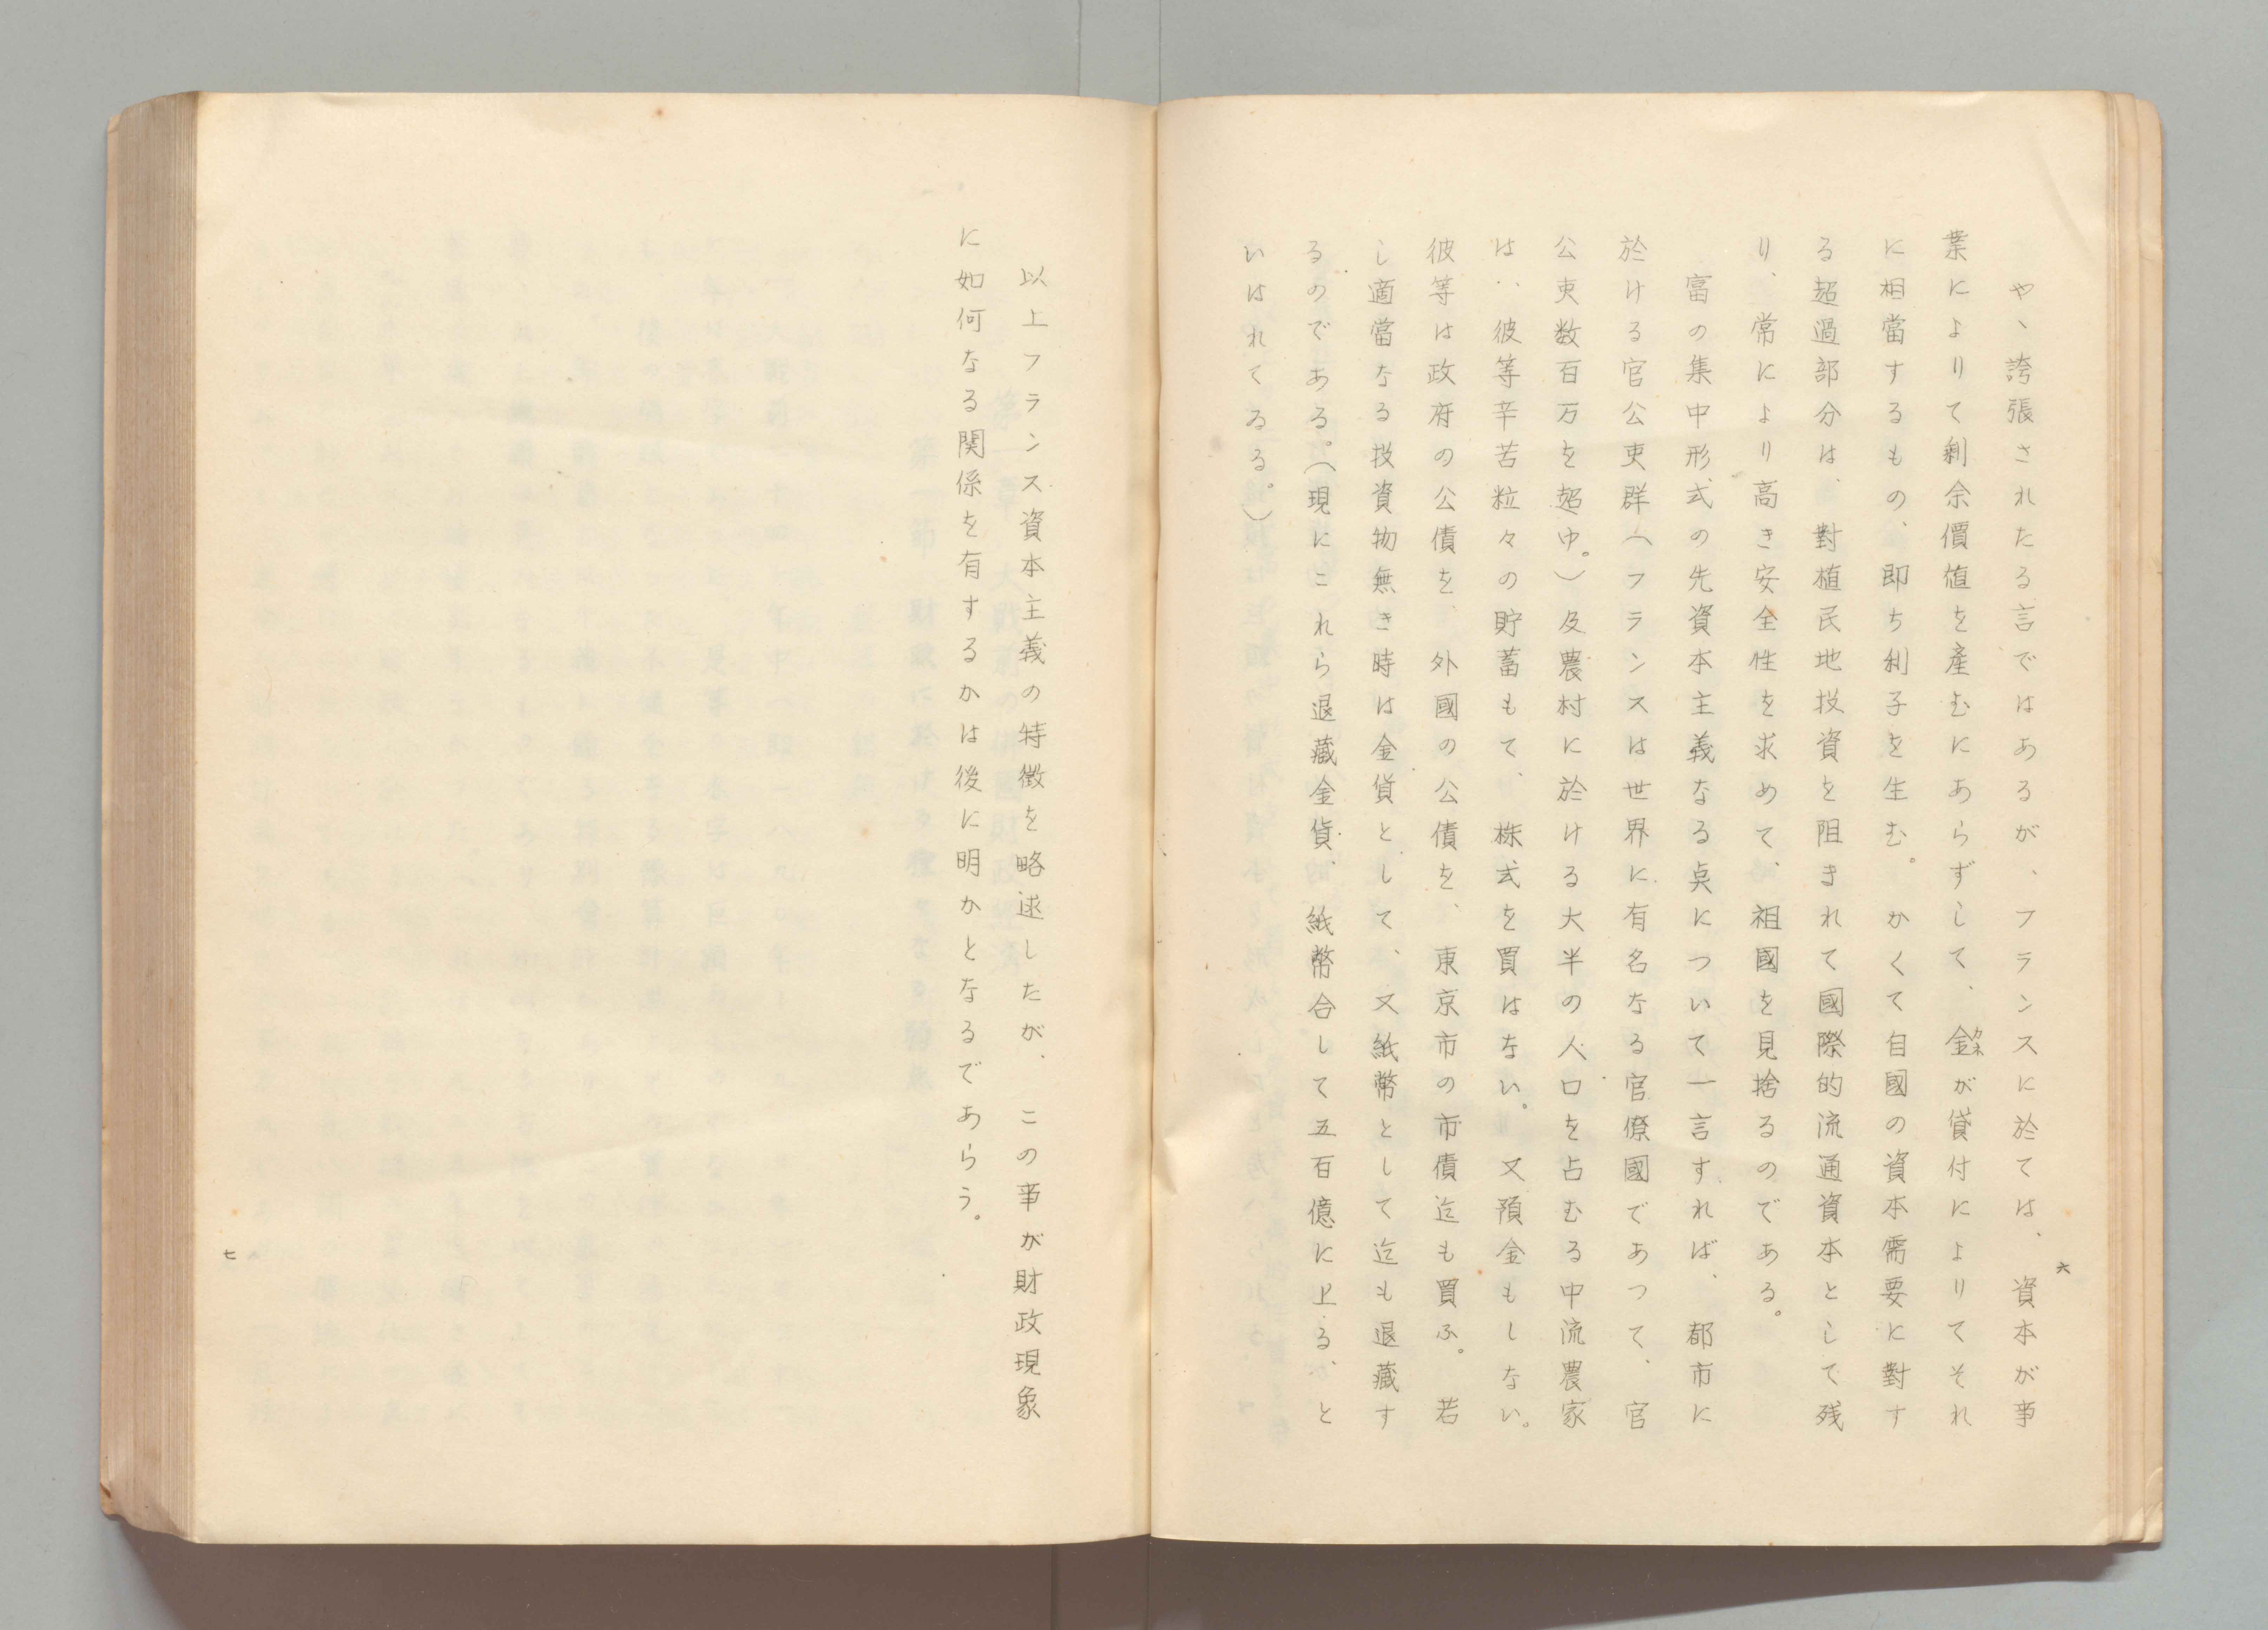 六
や、誇張されたる言ではあるが、フランスに於ては、資本が事
業によりて剰余價値を産むにあらずして、金が貸付によりてそれ
カネ
に相當するもの、即ち利子を生む。かくて自國の資本需要に對す
る超過部分は、對植民地投資を阻まれて國際的流通資本として残
り、常により高き安全性を求めて、祖國を見捨るのである。
富の集中形式の先資本主義なる点について一言すれば、都市に
於ける官公吏群（フランスは世界に有名なる官僚國であつて、官
公吏数百万を超ゆ。）及農村に於ける大半の人口を占むる中流農家
は、彼等辛苦粒々の貯蓄もて、株式を買はない。又預金もしない。
彼等は政府の公債を、外國の公債を、東京市の市債迄も買ふ。若
し適當なる投資物無き時は金貨として、又紙幣として迄も退藏す
るのである。（現にこれら退藏金貨、紙幣合して五百億に上る、と
いはれてゐる。）
以上フランス資本主義の特徴を略述したが、この事が財政現象
に如何なる関係を有するかは後に明かとなるであらう。
七